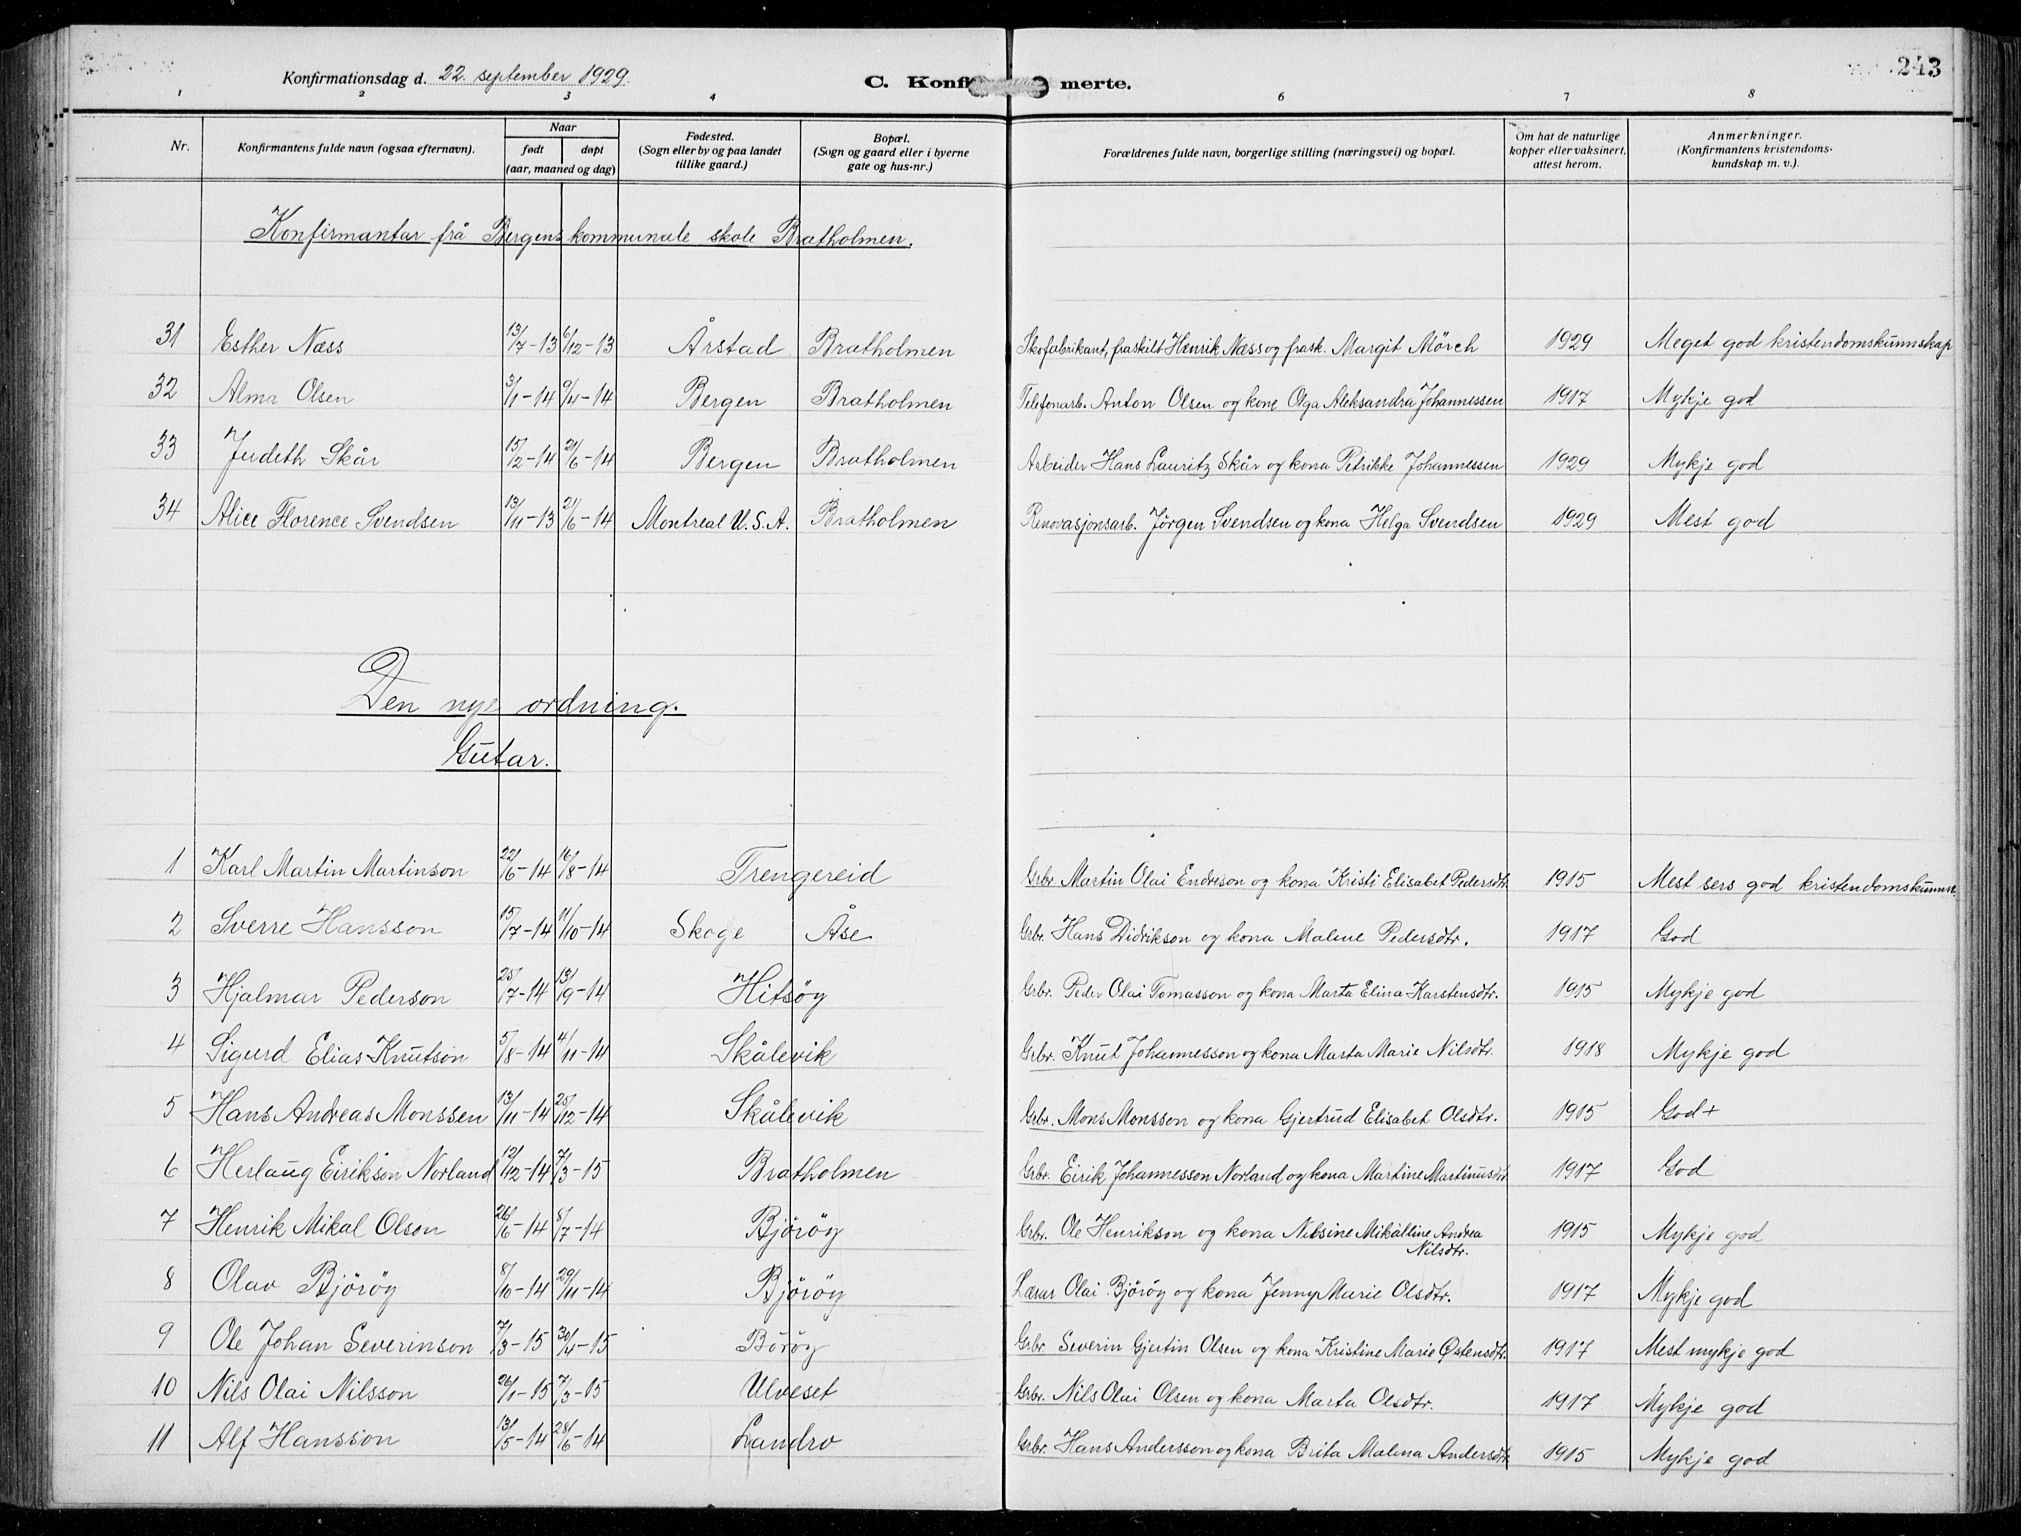 243
Konfirmationsdag d. 22. september 1929.
C. Konfi merte.
1 2 3 4 6 7 8
Nr. Konfirmantens fulde navn (og saa efternavn). Naar født døpt (aar, maaned og dag) Fødested. (Sogn eller by og paa landet tillike gaard.) Bopæl. (Sogn og gaard eller i byerne gate og hus-nr.) Forældrenes fulde navn, borgerlige stilling (næringsvei) og bopæl. Om hat de naturlige kopper eller vaksinert, attest herom. Anmerkninger. (Konfirmantens kristendoms-kundskap m. v.).
Konfirmantar frå Bergens kommunale skole Bratholmen.
31 Esther Næss 13/7-13 6/12-13 Årstad Bratholmen Skofabrikant, fraskilt Henrik Næss og frask. Margit Mörch 1929 Meget god kristendomskunnskap
32 Alma Olsen 3/1-14 9/11-14 Bergen Bratholmen Telefonarb. Anton Olsen og kone Olga Aleksandra Johannessen 1917 Mykje god
33 Judeth Skår 15/2-14 21/6-14 Bergen Bratholmen Arbeider Hans Lauritz Skår og kona Petrikke Johannessen 1929 Mykje god
34 Alice Florence Svendsen 13/11-13 21/6-14 Montreal U.S.A. Bratholmen Renovasjonsarb. Jørgen Svendsen og kona Helga Svendsen 1929 Mest god
Den nye ordning.
Gutar.
1 Karl Martin Martinson 22/6-14 16/8-14 Trengereid Grbr. Martin Olai Endreson og kona Kristi Elisabet Pedersdtr. 1915 Mest sers god kristendomskunns.
2 Sverre Hansson 15/7-14 11/10-14 Skoge Åse Grbr. Hans Didrikson og kona Malene Pedersdtr. 1917 God
3 Hjalmar Pederson 25/7-14 13/9-14 Hitsøy Grbr. Peder Olai Tomasson og kona Marta Elina Karstensdtr. 1915 Mykje god
4 Sigurd Elias Knutson 5/8-14 4/11-14 Skålevik Grbr. Knut Johannesson og kona Marta Marie Nilsdtr. 1918 Mykje god
5 Hans Andreas Monssen 13/11-14 25/12-14 Skålevik Grbr. Mons Monsson og kona Gjertrud Elisabet Olsdtr. 1915 God+
6 Herlaug Eirikson Norland 12/12-14 7/3-15 Bratholmen Grbr. Eirik Johannesson Norland og kona Martine Martinusdtr. 1917 God
7 Henrik Mikal Olson 26/6-14 8/7-14 Björöy Grbr. Ole Henrikson og kona Nilsine Mikalline Andrea Nilsdtr. 1915 Mykje god
8 Olav Björöy 8/10-14 29/11-14 Björöy Lærar Olai Björöy og kona Jenny Marie Olsdtr. 1917 Mykje god
9 Ole Johan Severinson 7/3-15 30/4-15 Böröy Grbr. Severin Gjertin Olsen og kona Kristine Marie Østensdtr. 1917 Mest mykje god
10 Nils Olai Nilsson 26/1-15 7/3-15 Ulveset Grbr. Nils Olai Olsen og kona Marta Olsdtr. 1917 Mykje god
11 Alf Hansson 13/5-14 28/6-14 Landro Grbr. Hans Andersson og kona Brita Malena Andersdtr. 1915 Mykje god